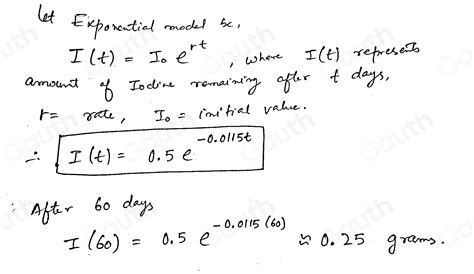 let Exponential model be,
I(t) = I₀ e^{rt}, where I(t) represents
amount of Iodine remaining after t days,
r = rate, I₀ = initial value.
∴ I(t) = 0.5 e^{-0.0115t}
: After 60 days
I(60) = 0.5 e^{-0.0115(60)} ≈ 0.25 grams.